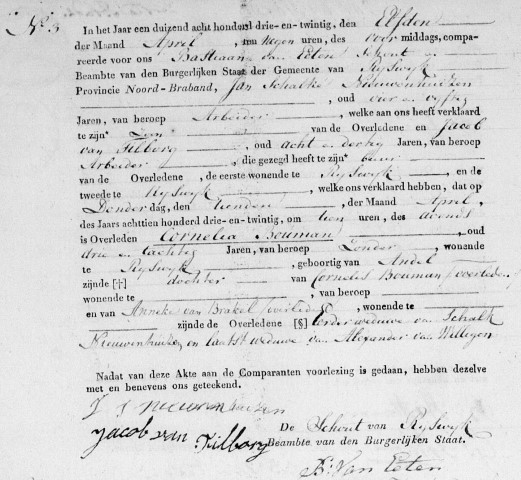 No 3
In het Jaar een duizend acht honderd drie-en-twintig, den Elfden
der Maand April, ten negen uren, des voor middags, compa-
reerde voor ons Bastiaan van Eeten Schout
Beambte van den Burgerlijken Staat der Gemeente van Ryswyk
Provincie Noord-Braband, Jan Schalke Nieuwenhuizen
, oud vier en vyftig
Jaren, van beroep Arbeider, welke aan ons heeft verklaard
te zijn* Zoon van de Overledene en Jacob
van Tilborg, oud acht en dertig Jaren, van beroep
Arbeider, die gezegd heeft te zijn* buur
van de Overledene, de eerste wonende te Ryswyk, en de
tweede te Ryswyk, welke ons verklaard hebben, dat op
Donder dag, den tienden, der Maand April,
des Jaars achttien honderd drie-en-twintig, om tien uren, des avonds
is Overleden Cornelia Bouman, oud
drie en tachtig Jaren, van beroep Zonder, wonende
te Ryswyk, geboortig van Andel
zijnde [‡] dochter van Cornelis Bouman /overleden/
wonende te, van beroep
en van Anneke van Brakel /overleden/, wonende te
zijnde de Overledene [§] eerder weduwe van Schalk
Nieuwenhuizen en laatst weduwe van Alexander van Willegen
Nadat van deze Akte aan de Comparanten voorlezing is gedaan, hebben dezelve
met en benevens ons geteekend.
J S nieuwenhuizen
Jacob van Tilborg
De Schout van Ryswyk
Beambte van den Burgerlijken Staat.
Bn Van Eeten